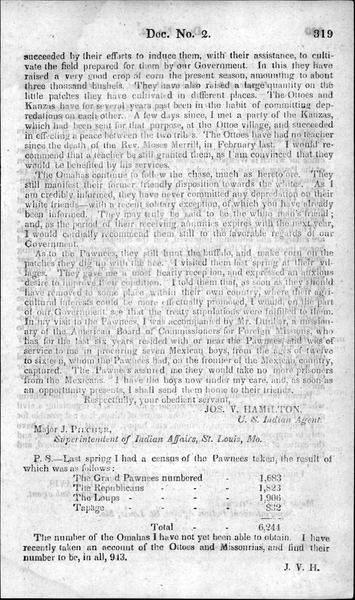 Doc. No. 2. 319
succeeded by their efforts to induce them, with their assistance, to culti-
vate the field prepared for them by our Government. In this they have
raised a very good crop of corn the present season, amounting to about
three thousand bushels. They have also raised a large quantity on the
little patches they have cultivated in different places. The Ottoes and
Kanzas have for several years past been in the habit of committing dep-
redations on each other. A few days since, I met a party of the Kanzas,
which had been sent for that purpose, at the Ottoe village, and succeeded
in effecting a peace between the two tribes. The Ottoes have had no teacher
since the death of the Rev. Moses Merrill, in February last. I would re-
commend that a teacher be still granted them, as I am convinced that they
would be benefited by his services.
The Omahas continue to follow the chase, much as heretofore. They
still manifest their former friendly disposition towards the whites. As I
am credibly informed, they have never committed any depredation on their
white friends—with a recent solitary exception, of which you have already
been informed. They may truly be said to be the white man's friend;
and, as the period of their receiving annuities expires with the next year,
I would cordially recommend them still to the favorable regards of our
Government.
As to the Pawnees, they still hunt the buffalo, and make corn on the
patches they dig up with the hoe. I visited them last spring at their vil-
lages. They gave me a most hearty reception, and expressed an anxious
desire to improve their condition. I told them that, as soon as they should
have removed to some place within their own country, where their agri-
cultural interests could be more effectually promoted, I would, on the part
of our Government, see that the treaty stipulations were fulfilled to them.
In my visit to the Pawnees, I was accompanied by Mr. Dunbar, a mission-
ary of the American Board of Commissioners for Foreign Missions, who
has for the last six years resided with or near the Pawnees, and was of
service to me in procuring seven Mexican boys, from the ages of twelve
to sixteen, whom the Pawnees had, on the frontier of the Mexican country,
captured. The Pawnees assured me they would take no more prisoners
from the Mexicans. I have the boys now under my care, and, as soon as
an opportunity presents, I shall send them home to their friends.
Respectfully, your obedient servant,
JOS. V. HAMILTON,
U. S. Indian Agent.
Major J. PILCHER,
Superintendent of Indian Affairs, St. Louis, Mo.
P. S.—Last spring I had a census of the Pawnees taken, the result of
which was as follows:
The Grand Pawnees numbered - 1,683
The Republicans - - 1,823
The Loups - - - 1,906
Tapage - - - 832
Total - - 6,244
The number of the Omahas I have not yet been able to obtain. I have
recently taken an account of the Ottoes and Missourias, and find their
number to be, in all, 943.
J. V. H.